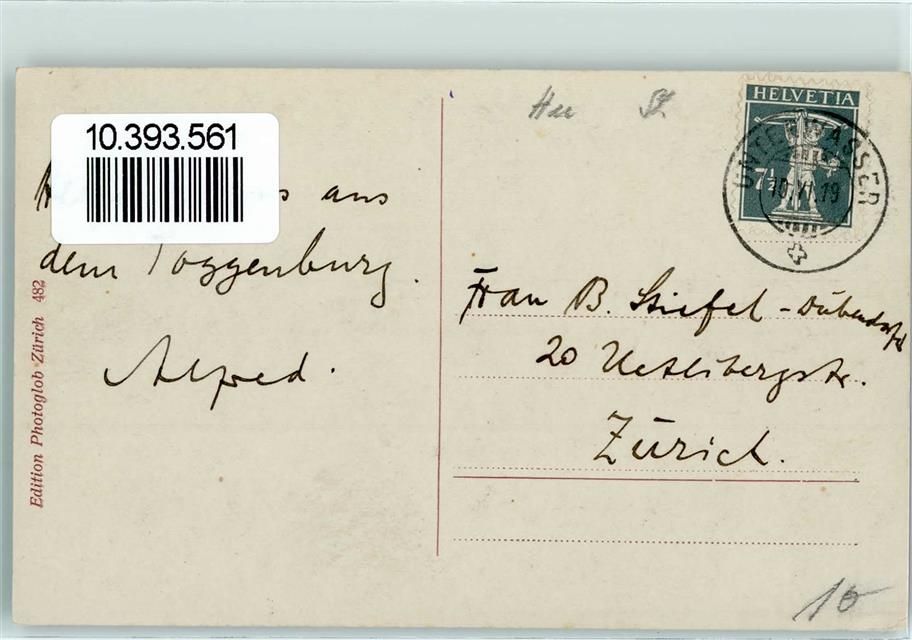 10.393.561
aus
dem Toggenburg.
Alfred.
Edition Photoglob Zürich 482
HELVETIA
7½
UNTERWASSER
10.VI.19
Frau B. Stiefel-Dübendorfer
20 Uetlibergstr.
Zürich.